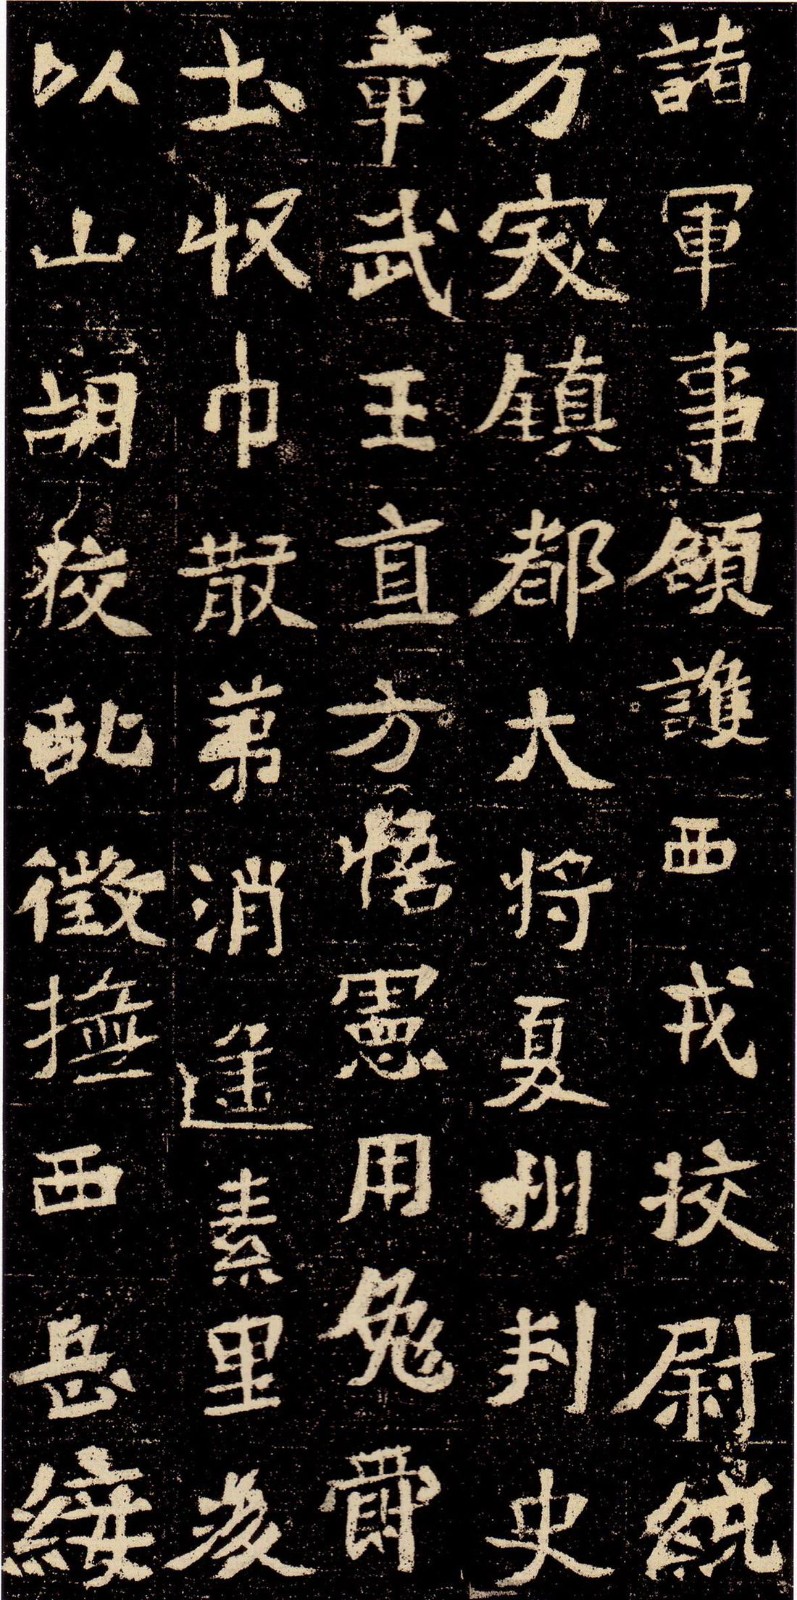 諸軍事領護西戎校尉統
万突鎮都大將夏州刺史
章武王直方悟憲用免爵
土收巾散第消遥素里後
以山胡狡亂徵撫西岳綏